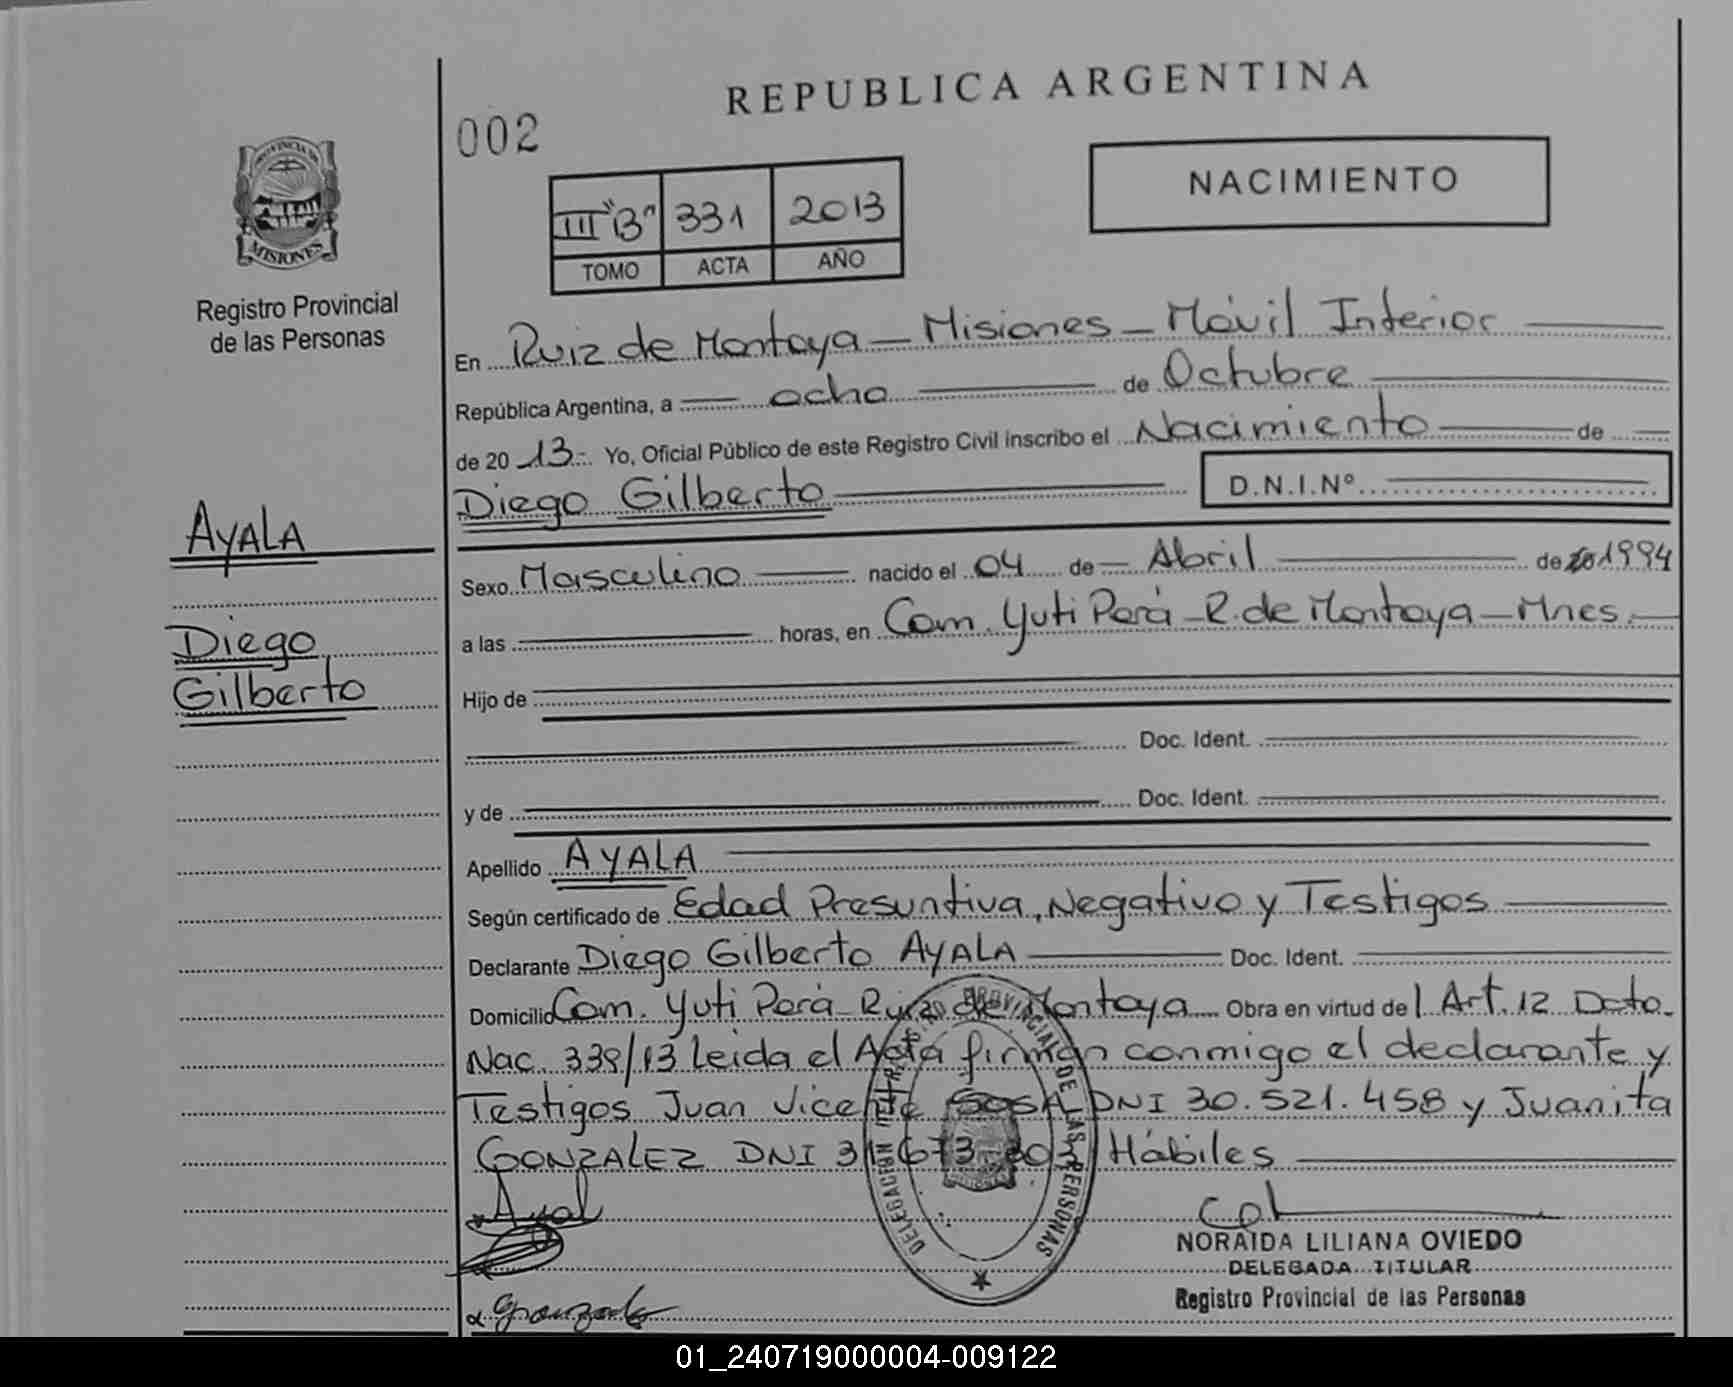 REPUBLICA ARGENTINA
002
PROVINCIA DE
MISIONES
Registro Provincial
de las Personas
III "B" 331 2013
TOMO ACTA AÑO
NACIMIENTO
En Ruiz de Montoya - Misiones - Móvil Interior
República Argentina, a ocho de Octubre
de 2013.- Yo, Oficial Público de este Registro Civil inscribo el Nacimiento de
Diego Gilberto D.N.I.Nº
AYALA
Diego
Gilberto
Sexo Masculino nacido el 04 de Abril de 1994
a las horas, en Com. Yuti Porá - R. de Montoya - Mnes.
Hijo de
Doc. Ident.
y de Doc. Ident.
Apellido AYALA
Según certificado de Edad Presuntiva, Negativo y Testigos
Declarante Diego Gilberto AYALA Doc. Ident.
Domicilio Com. Yuti Porá - Ruiz de Montoya Obra en virtud del Art. 12 Dcto.
Nac. 339/13 Leida el Acta firman conmigo el declarante y
Testigos Juan Vicente SOSA DNI 30.521.458 y Juanita
GONZALEZ DNI Hábiles
NORAIDA LILIANA OVIEDO
DELEGADA TITULAR
Registro Provincial de las Personas
REGISTRO PROVINCIAL DE LAS PERSONAS
DELEGACION
01_240719000004-009122